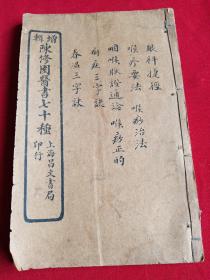 眼科捷徑
喉疹要法　喉痧治法
咽喉脉證通論　喉痧正的
白喉三字訣
春温三字訣
增輯陳修園醫書七十種
上海昌文書局印行